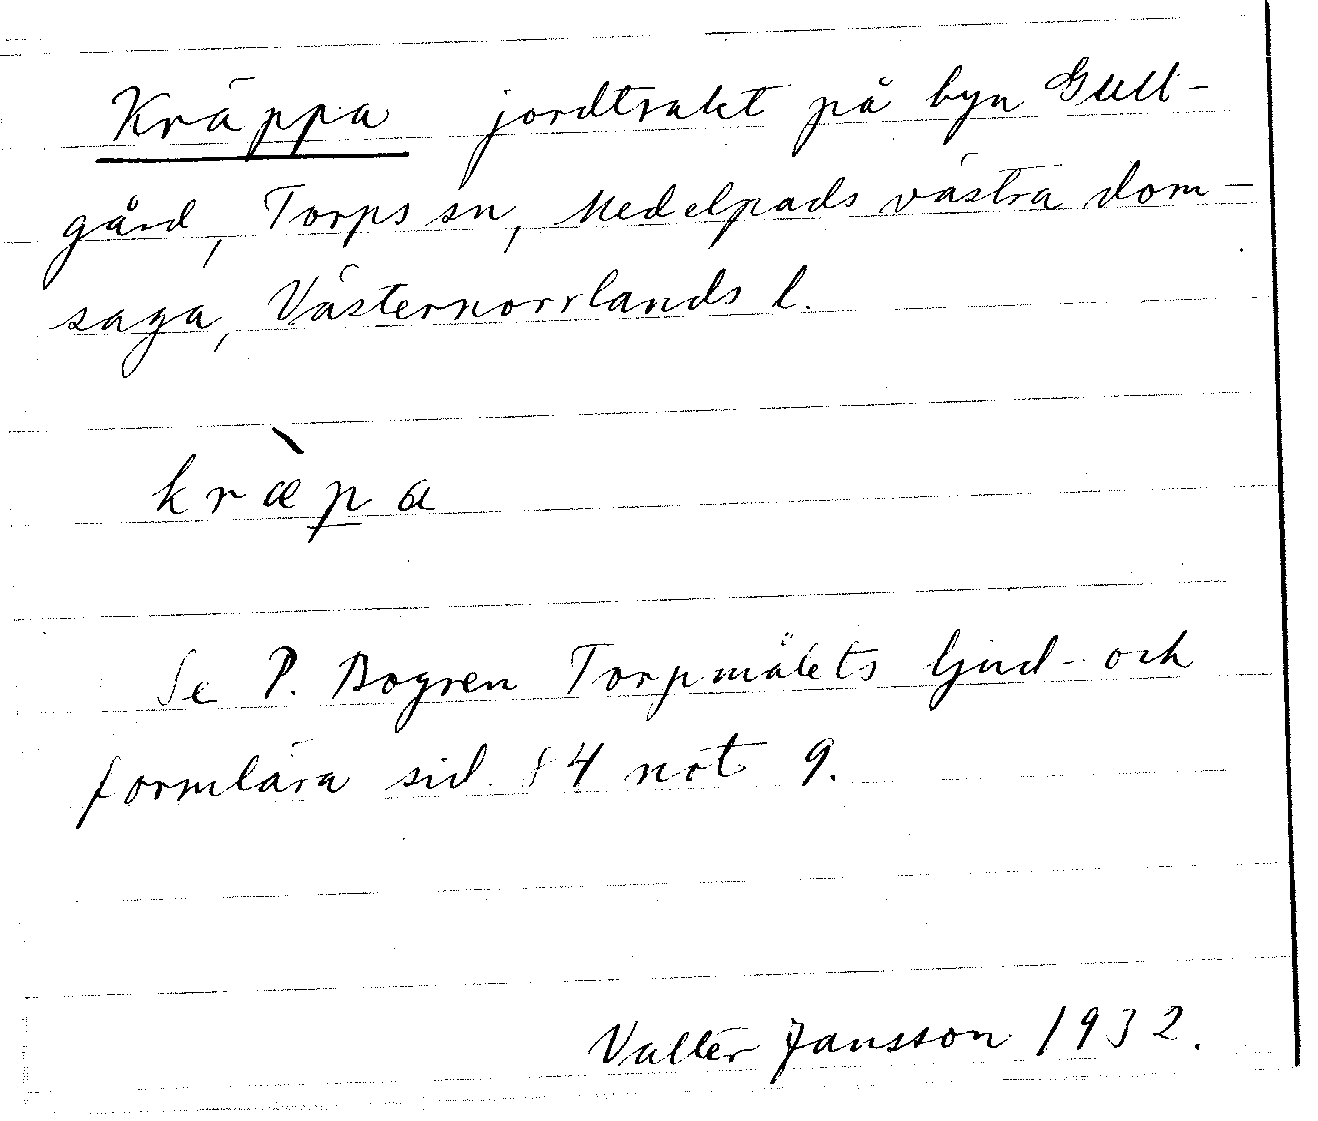 Kräppa jordtrakt på byn Gull-
gård, Torps sn, Medelpads västra dom-
saga, Västernorrlands l.
kræ̀pa
Se P. Bogren Torpmålets ljud- och
formlära sid. 84 not 9.
Valter Jansson 1932.